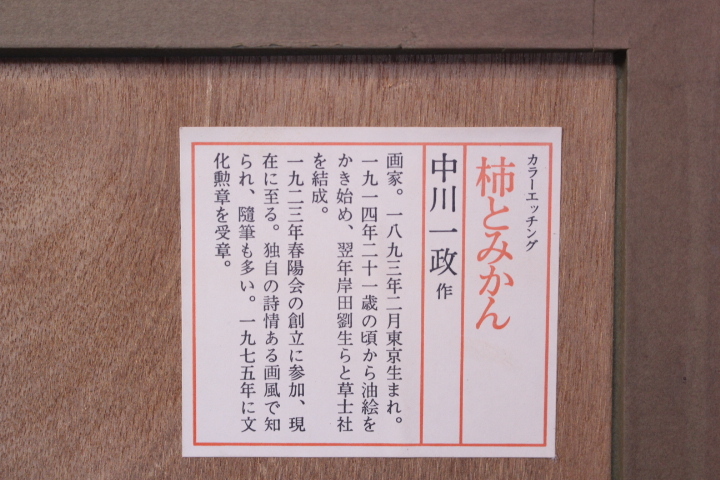 カラーエッチング
柿とみかん
中川一政 作
画家。一八九三年二月東京生まれ。
一九一四年二十一歳の頃から油絵を
かき始め、翌年岸田劉生らと草土社
を結成。
一九二三年春陽会の創立に参加、現
在に至る。独自の詩情ある画風で知
られ、随筆も多い。一九七五年に文
化勲章を受章。